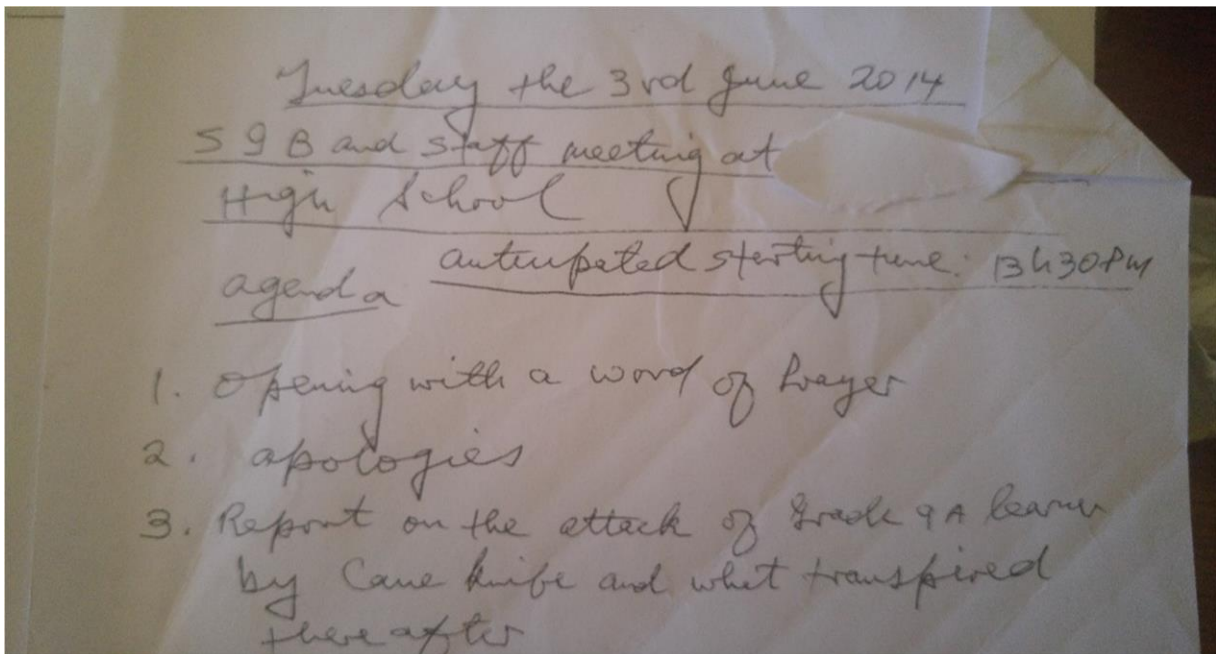 Tuesday the 3rd June 2014
S G B and staff meeting at
High School
anticipated starting time: 13h30PM
agenda
1. Opening with a word of Prayer
2. apologies
3. Report on the attack of Grade 9A learner
by Cane knife and what transpired
thereafter